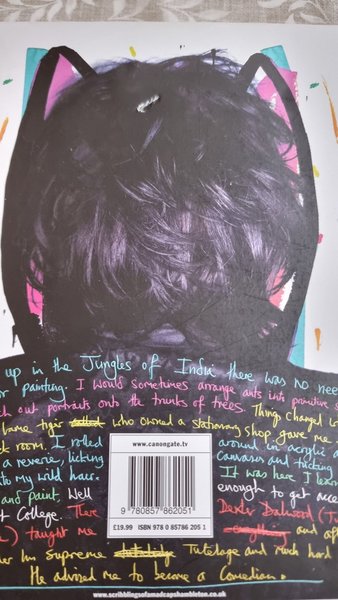 up in the Jungles of India there was no nee
r painting. I would sometimes arrange ants into primitive s
ch out portraits onto the trunks of trees. Things changed w
lame tiger who owned a stationary shop gave me
ck room. I rolled around in acrylic a
a reverie, licking canvases and tricking
to my wild hair. It was here I lear
and paint. Well enough to get acce
t College. There Dexter Dalwood (T
L) taught me everything and af
er his supreme Tutelage and Much hard
He advised me to become a Comedian.
www.canongate.tv
9 780857 862051
£19.99 ISBN 978 0 85786 205 1
www.scribblingsofamadcapshambleton.co.uk